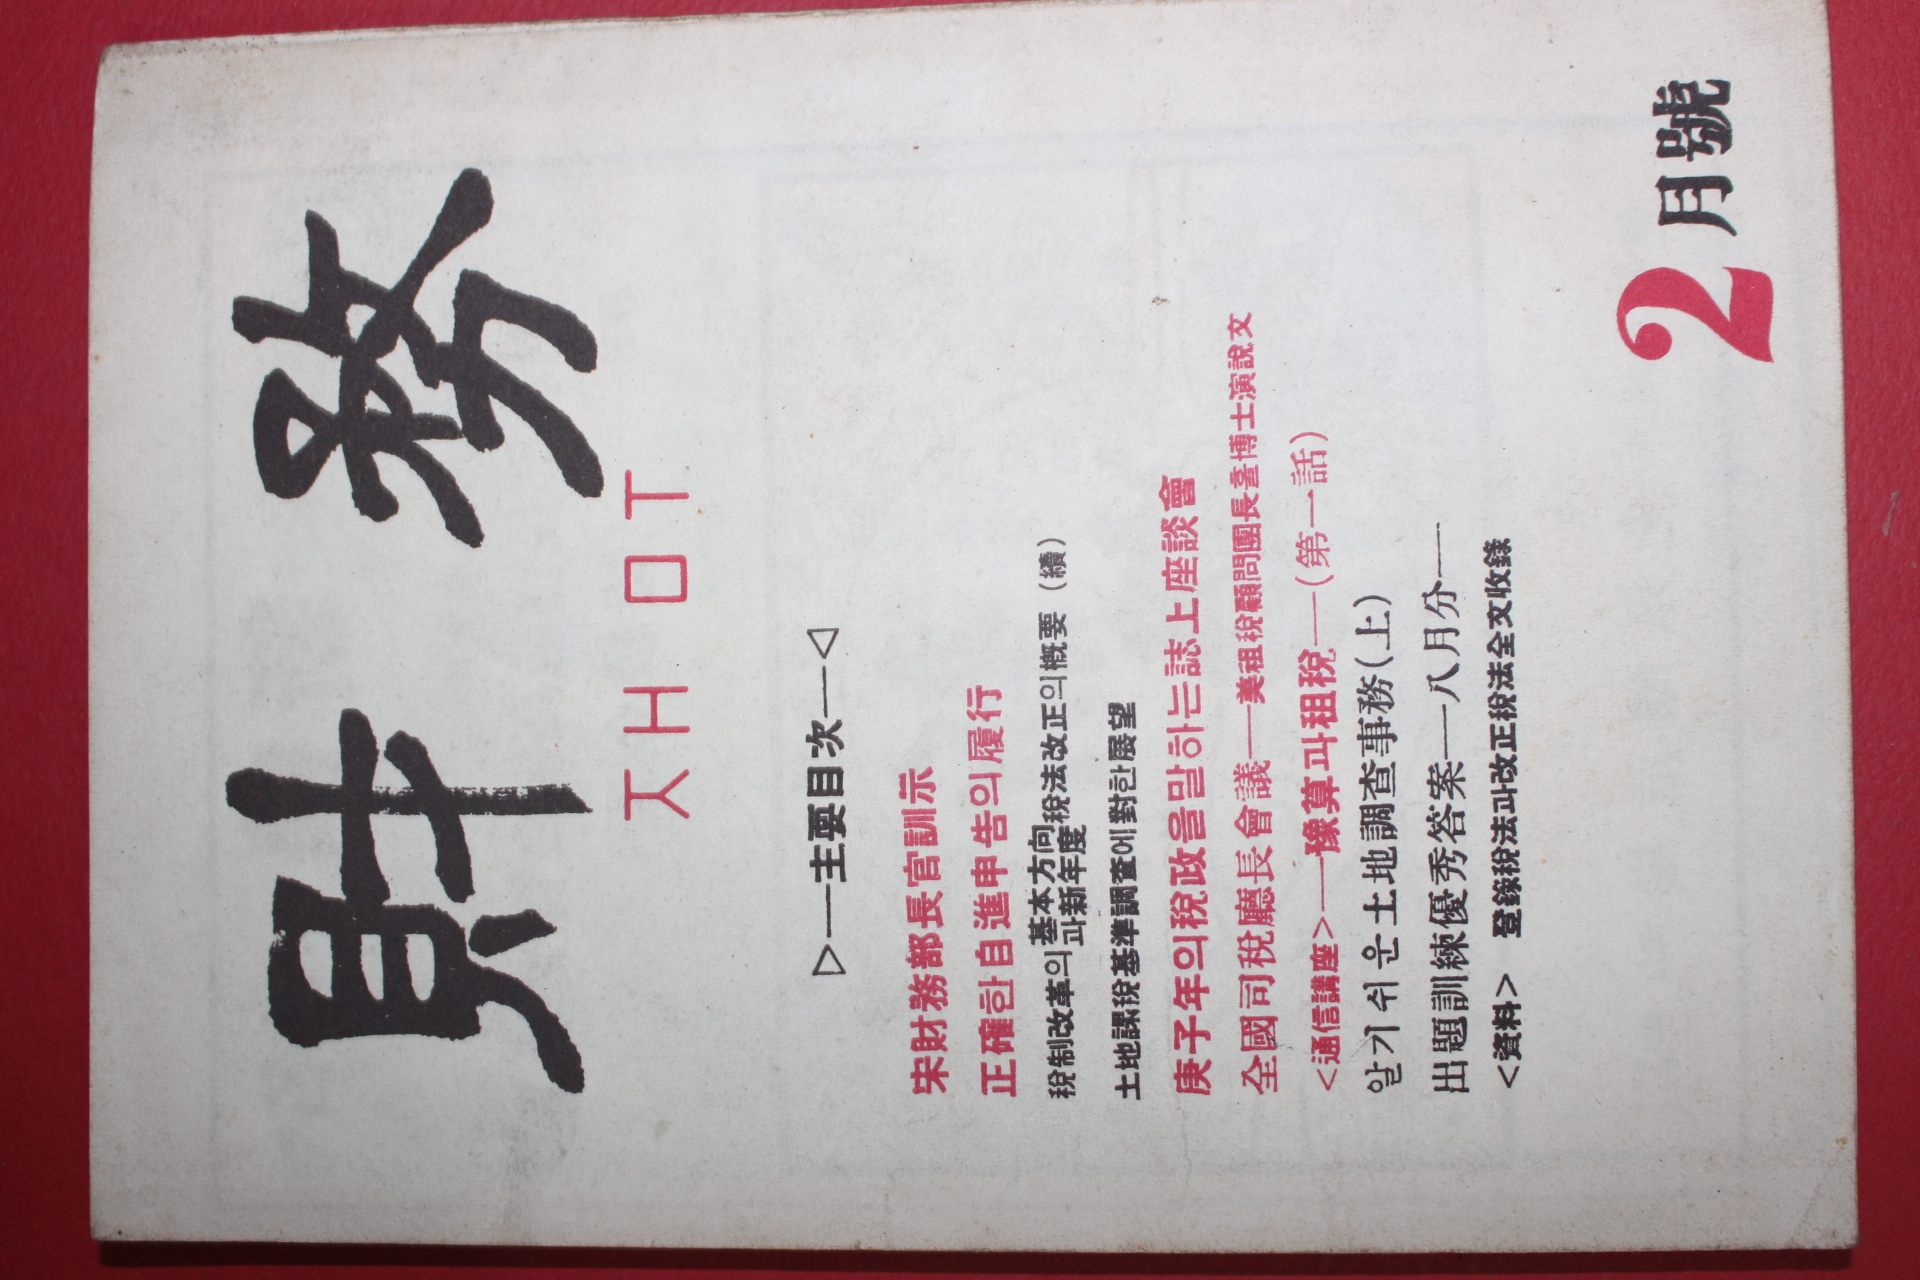 財務
ㅈㅐㅁㅜ
▷──主要目次──◁
宋財務部長官訓示
正確한自進申告의履行
稅制改革의基本方向과新年度稅法改正의槪要(續)
土地課稅基準調査에對한展望
庚子年의稅政을말하는誌上座談會
全國司稅廳長會議──美租稅顧問團長홀博士演說文
<通信講座>──豫算과租稅──(第一話)
알기쉬운土地調査事務(上)
出題訓練優秀答案─八月分─
<資料> 登錄稅法과改正稅法全文收錄
2月號